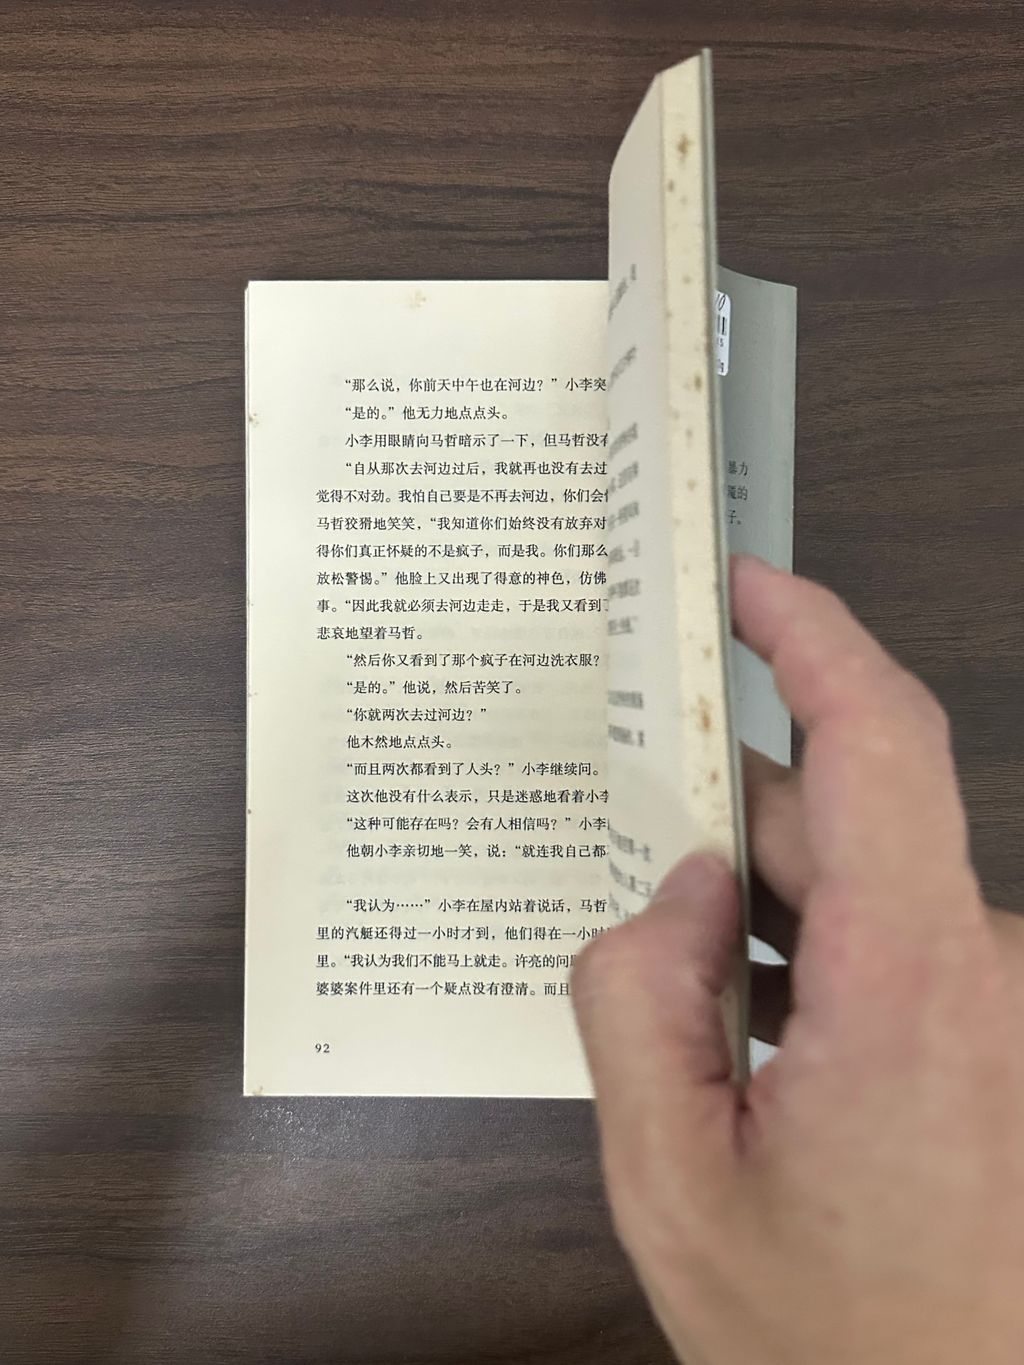 “那么说，你前天中午也在河边？”小李突
“是的。”他无力地点点头。
小李用眼睛向马哲暗示了一下，但马哲没有
“自从那次去河边过后，我就再也没有去过
觉得不对劲。我怕自己要是不再去河边，你们会
马哲狡猾地笑笑，“我知道你们始终没有放弃对
得你们真正怀疑的不是疯子，而是我。你们那么
放松警惕。”他脸上又出现了得意的神色，仿佛
事。“因此我就必须去河边走走，于是我又看到了
悲哀地望着马哲。
“然后你又看到了那个疯子在河边洗衣服？
“是的。”他说，然后苦笑了。
“你就两次去过河边？”
他木然地点点头。
“而且两次都看到了人头？”小李继续问。
这次他没有什么表示，只是迷惑地看着小李
“这种可能存在吗？会有人相信吗？”小李
他朝小李亲切地一笑，说：“就连我自己都
“我认为……”小李在屋内站着说话，马哲
里的汽艇还得过一小时才到，他们得在一小时
里。“我认为我们不能马上就走。许亮的问
婆婆案件里还有一个疑点没有澄清。而且
92
暴力
的
子。